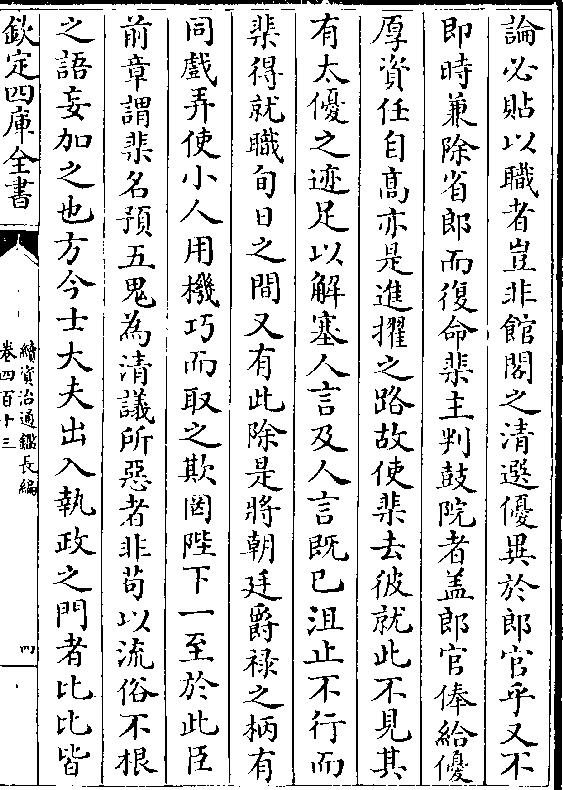 論必貼以職者豈非館閣之清選優異於郎官乎又不
即時兼除省郎而復命棐主判鼓院者盖郎官俸給優
厚資任自高亦是進擢之路故使棐去彼就此不見其
有太優之迹足以解塞人言及人言既已沮止不行而
棐得就職旬日之間又有此除是將朝廷爵禄之柄有
同戲弄使小人用機巧而取之欺罔陛下一至於此臣
前章謂棐名預五鬼為清議所惡者非苟以流俗不根
之語妄加之也方今士大夫出入執政之門者比比皆
欽定四庫全書
續資治通鑑長編
卷四百十三
四